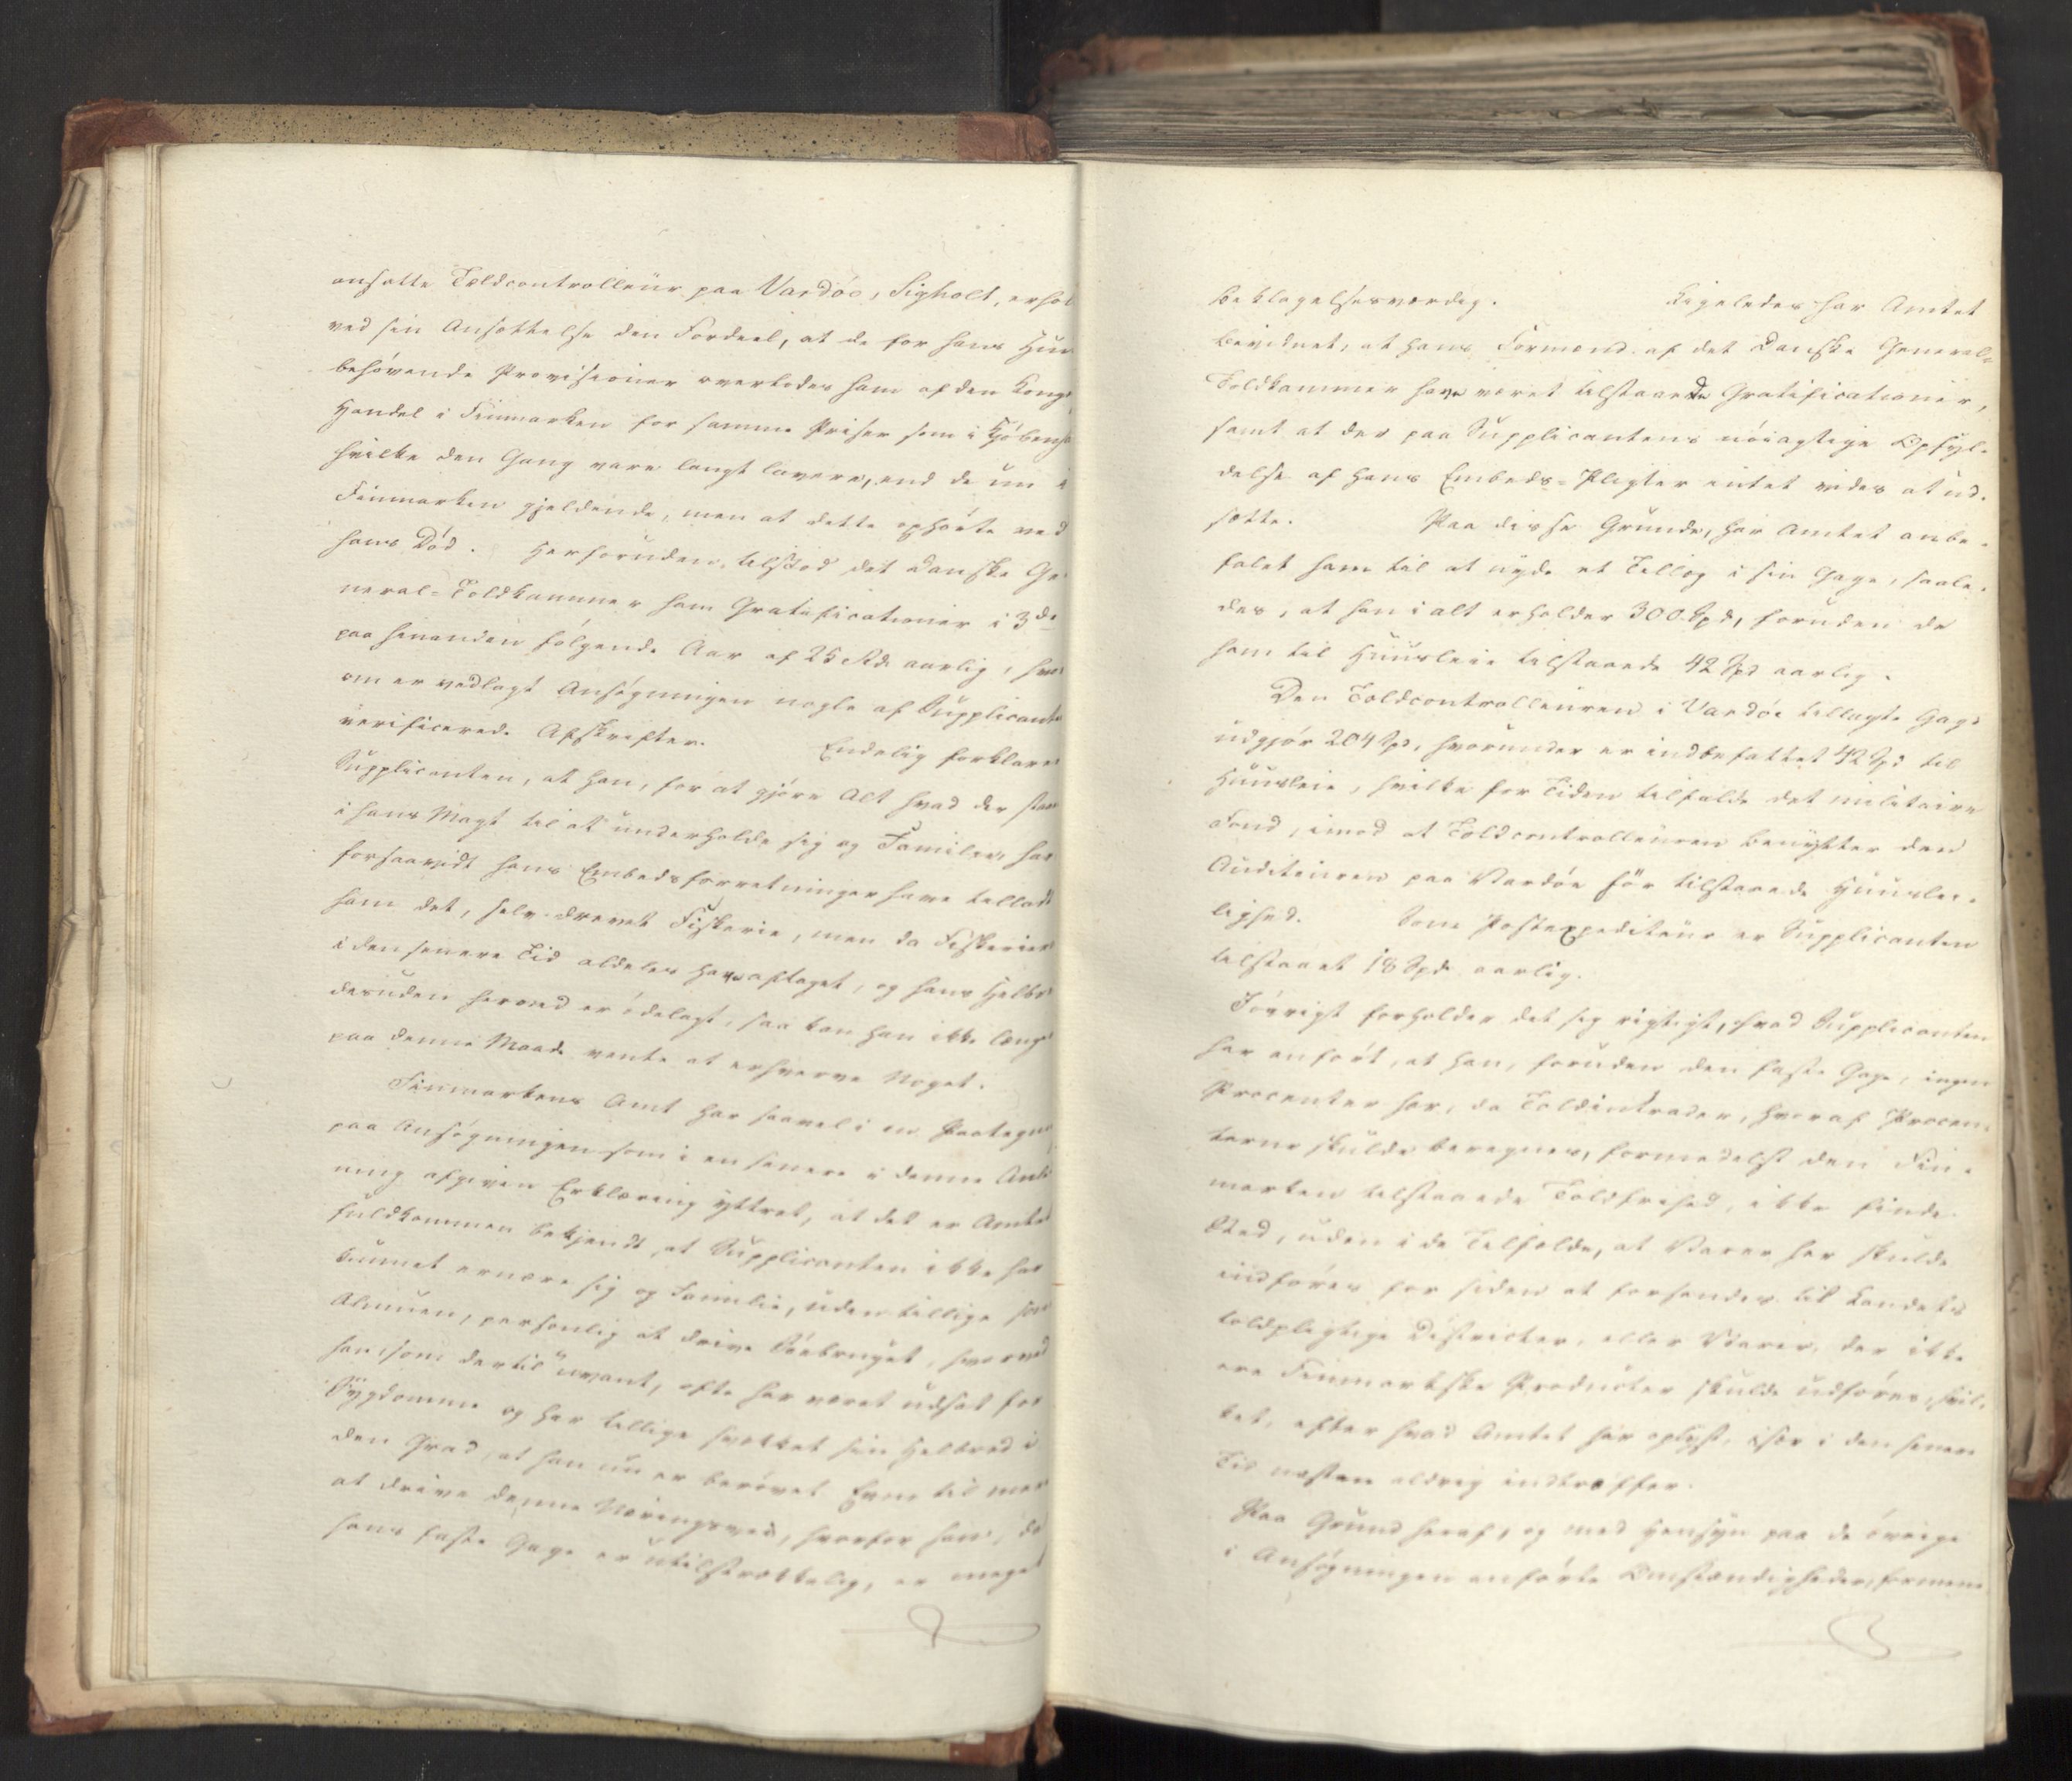 ansatte Toldcontrolleur paa Vardøe, Sigholt, erhol
ved sin Ansættelse den Fordeel, at de for hans Huus
behøvende Provisioner overlodes ham af den Kongl.
Handel i Finmarken for samme Priser som i Kjøbenh
hvilke den Gang vare langt lavere, end de nu i
Finmarken gjeldende, men at dette ophørte ved
hans Død. Herforuden tilstod det danske Ge-
neral-Toldkammer ham Gratificationer i 3de
paa hinanden følgende Aar af 25 Rd. aarlig, hvor
om er vedlagt Ansøgningen nogle af Supplicanten
verificerede Afskrifter. Endelig forklarer
Supplicanten, at han, for at gjøre Alt hvad der staaer
i hans Magt til at underholde sig og Familie, har
forsaavidt hans Embedsforretninger have tilladt
ham det, selv drevet Fiskerie, men da Fiskeriet
i den senere Tid aldeles have aftaget, og hans Helbred
desuden herved er ødelagt, saa kan han ikke længer
paa denne Maade vente at erhverve Noget.
Finmarkens Amt har saavel i en Paategning
paa Ansøgningen som i en senere i denne Anled
ning afgiven Erklæring yttret, at det er Amtet
fuldkommen bekjendt, at Supplicanten ikke har
kunnet ernære sig og Familie, uden tillige som
Almuen, personlig at drive Søebruget, hvorved
han som dertil uvant, ofte har været udsat for
Sygdomme og har tillige svækket sin Helbred i
den Grad, at han nu er berøvet Evne til mere
at drive denne Næringsvei, hvorfor han, da
hans faste Gage er utilstrækkelig, er meget
beklagelsesværdig. Ligeledes har Amtet
bevidnet, at hans Formænd af det danske General-
Toldkammer have været tilstaaede Gratificationer,
samt at der paa Supplicantens nøiagtige Opfyl-
delse af hans Embeds-Pligter intet vides at ud-
sætte. Paa disse Grunde, har Amtet anbe-
falet ham til at nyde et Tillæg i sin Gage, saale-
des, at han i alt erholder 300 Spd, foruden de
ham til Huusleie tilstaaede 42 Spd aarlig.
Den Toldcontrolleuren i Vardøe tillagte Gage
udgjør 204 Spd, hvorunder er indbefattet 42 Spd til
Huusleie, hvilke for Tiden tilfalde det militaire
Fond, imod at Toldcontrolleuren benytter den
Auditeuren paa Vardøe før tilstaaede Huuslei-
lighed. Som Postexpediteur er Supplicanten
tilstaaet 18 Spd. aarlig.
Iøvrigt forholder det sig rigtigt, hvad Supplicanten
har anført, at han, foruden den faste Gage, ingen
Procenter har, da Toldintrader, hvoraf Procen-
terne skulde beregnes, formedelst den Fin-
marken tilstaaede Toldfrihed, ikke finde
Sted, uden i de Tilfælde, at Varer her skulde
indføres for siden at forsendes til Landets
toldpligtige Districter, eller Varer, der ikke
ere Finmarkske Producter skulde udføres, hvil-
ket, efter hvad Amtet har oplyst, især i den senere
Tid næsten aldrig indtræffer.
Paa Grund heraf, og med Hensyn paa de øvrige
i Ansøgningen anførte Omstændigheder, formene